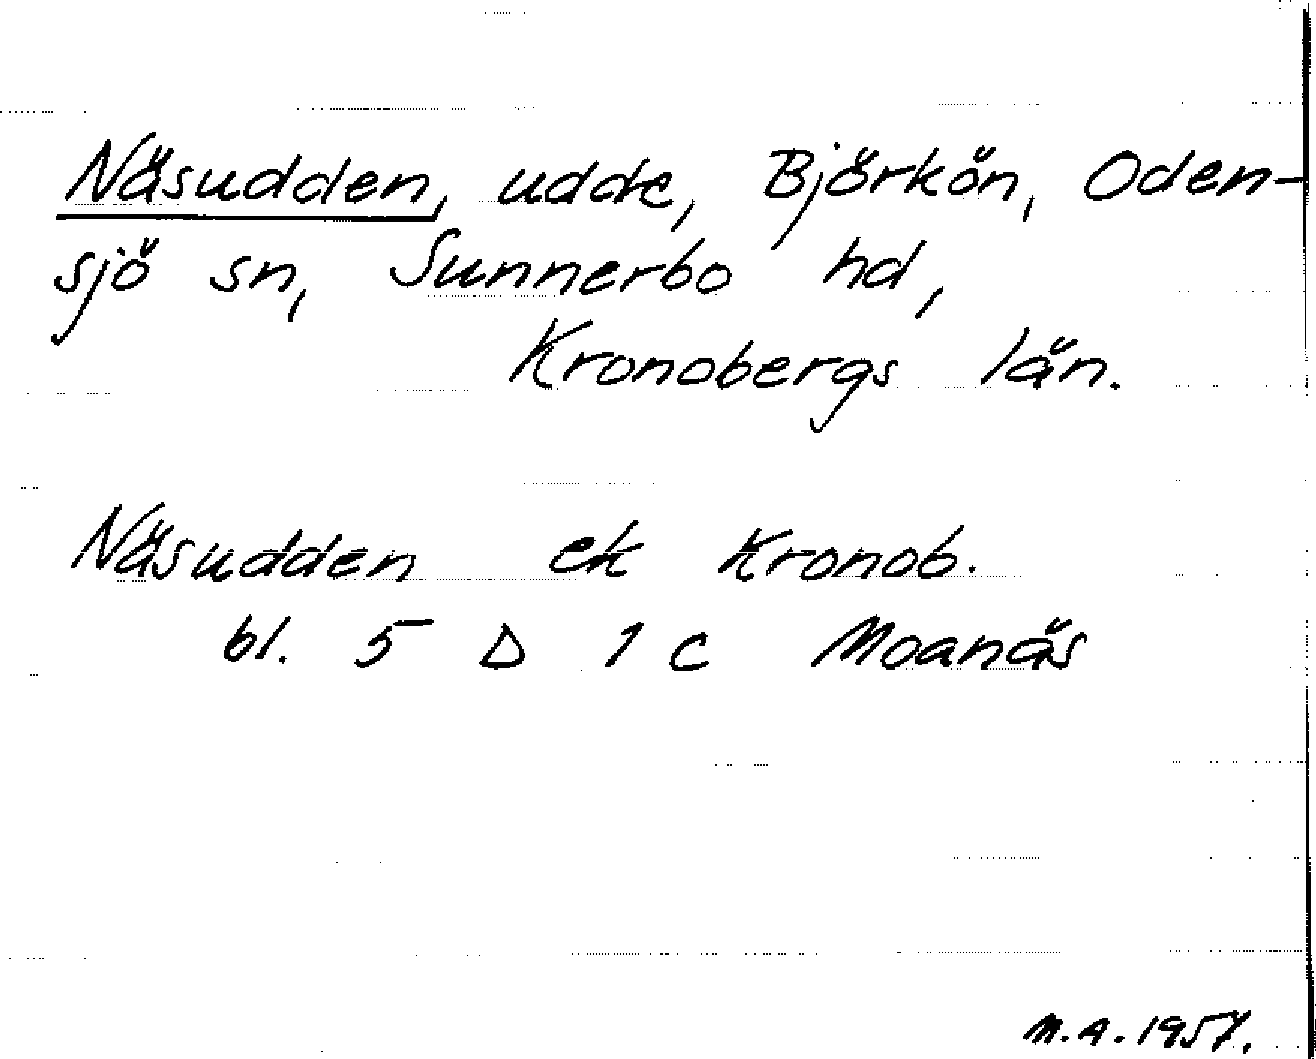 Näsudden, udde, Björkön, Oden-
sjö sn, Sunnerbo hd,
Kronobergs län.
Näsudden ek Kronob.
bl. 5 D 1 c Moanäs
M.A. 1957.